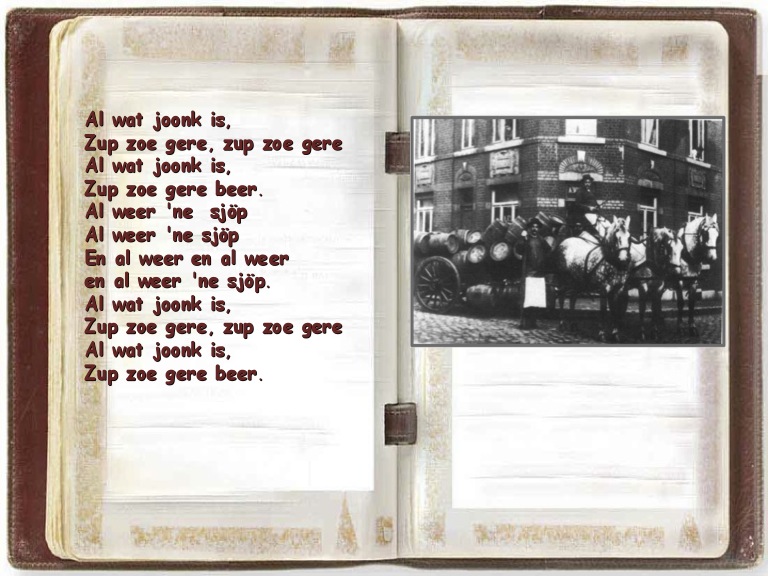 Al wat joonk is,
Zup zoe gere, zup zoe gere
Al wat joonk is,
Zup zoe gere beer.
Al weer 'ne sjöp
Al weer 'ne sjöp
En al weer en al weer
en al weer 'ne sjöp.
Al wat joonk is,
Zup zoe gere, zup zoe gere
Al wat joonk is,
Zup zoe gere beer.